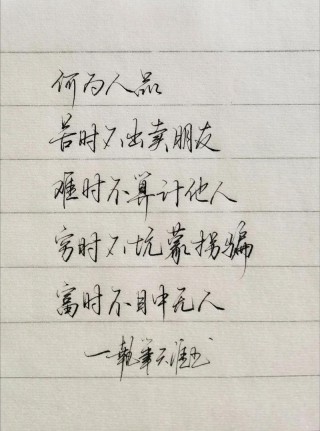 何为人品
苦时不出卖朋友
难时不算计他人
穷时不坑蒙拐骗
富时不目中无人
一執筆天涯书